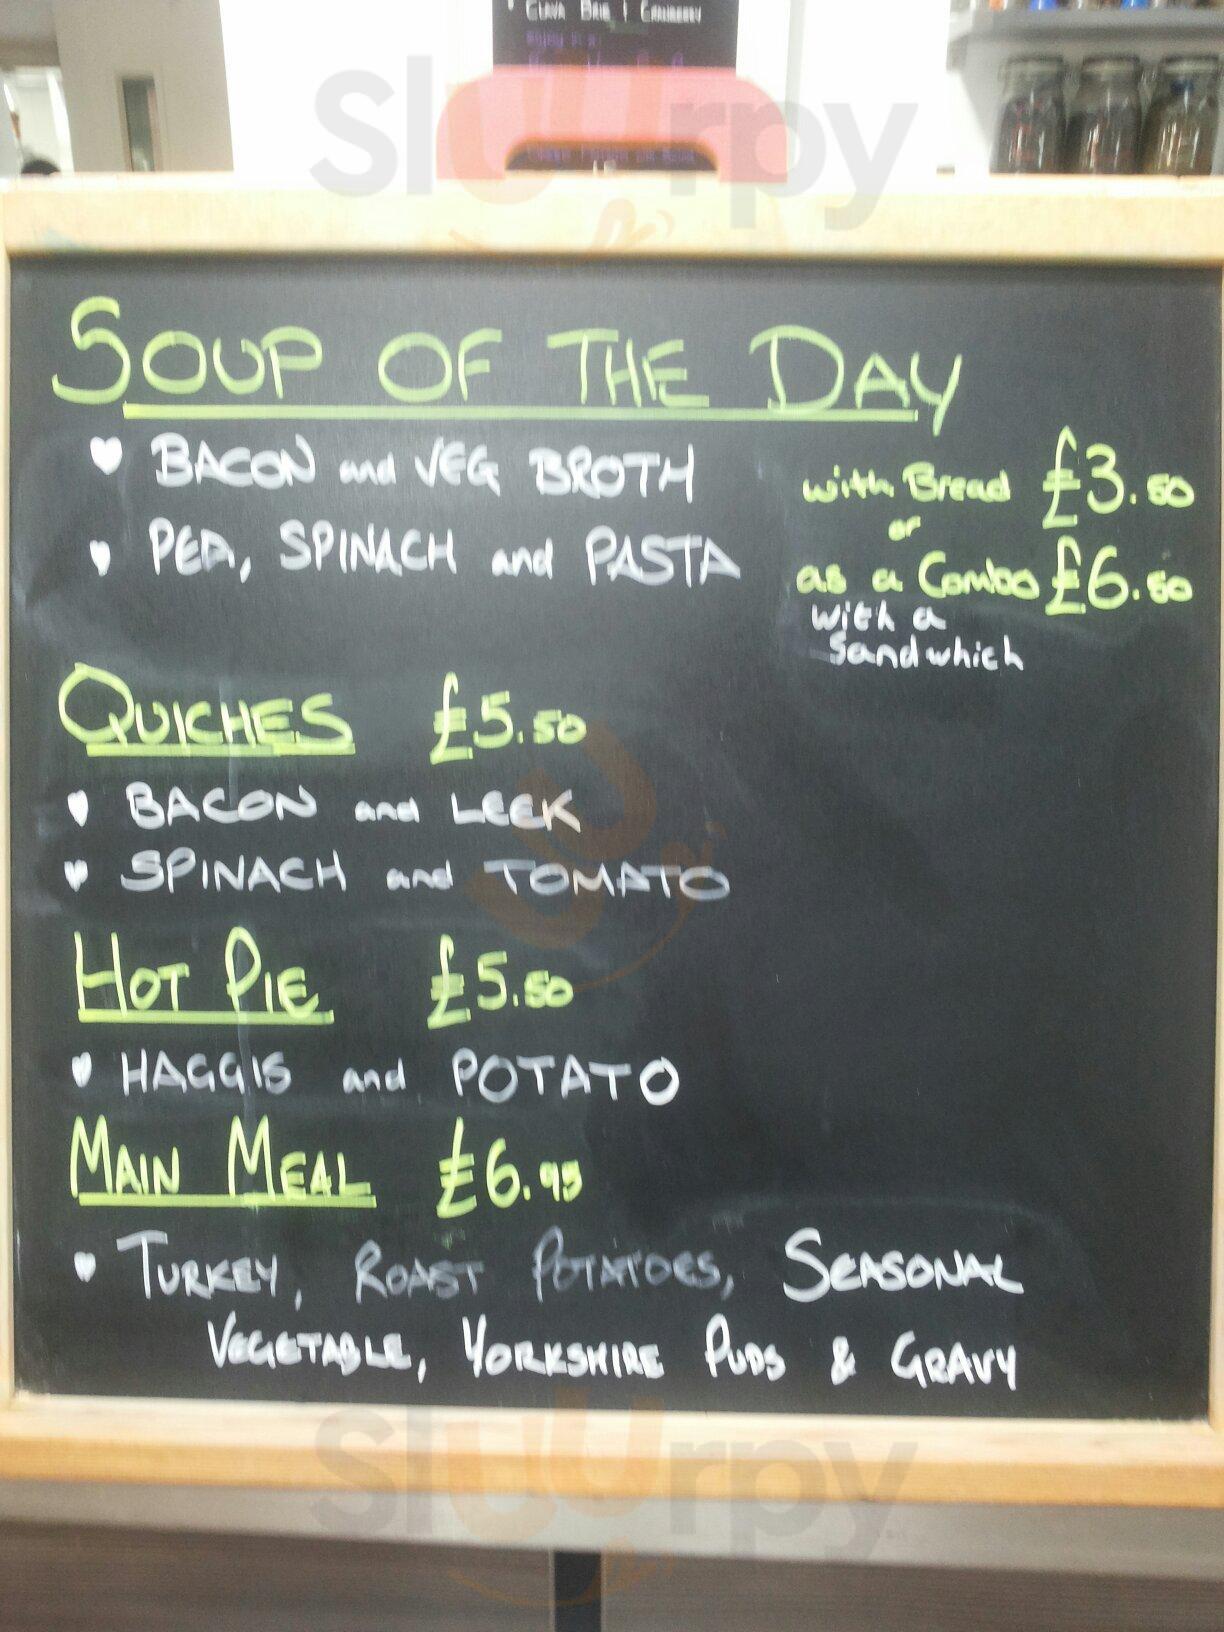 CLAVA BRIE | CRANBERRY
Sluurpy
SOUP OF THE DAY
BACON and VEG BROTH
PEA, SPINACH and PASTA
with Bread £3.50
or
as a Combo £6.50
with a
Sandwhich
QUICHES £5.50
BACON and LEEK
SPINACH and TOMATO
HOT PIE £5.50
HAGGIS and POTATO
MAIN MEAL £6.95
TURKEY, ROAST POTATOES, SEASONAL
VEGETABLE, YORKSHIRE PUDS & GRAVY
Sluurpy